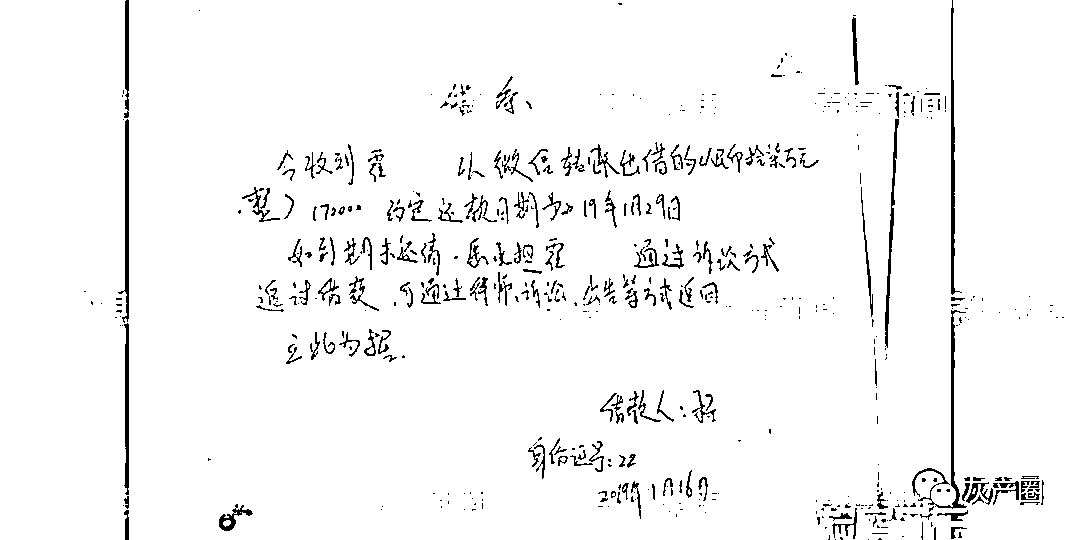 借条
今收到霍 以微信转账出借的人民币拾柒万元
整) 170000 约定还款日期为2019年1月29日
如到期未还清,愿承担霍 通过诉讼方式
追讨借款,可通过律师,诉讼,公告等方式追回
立此为据.
借款人:
身份证号:22
2019年1月16日
灰产圈